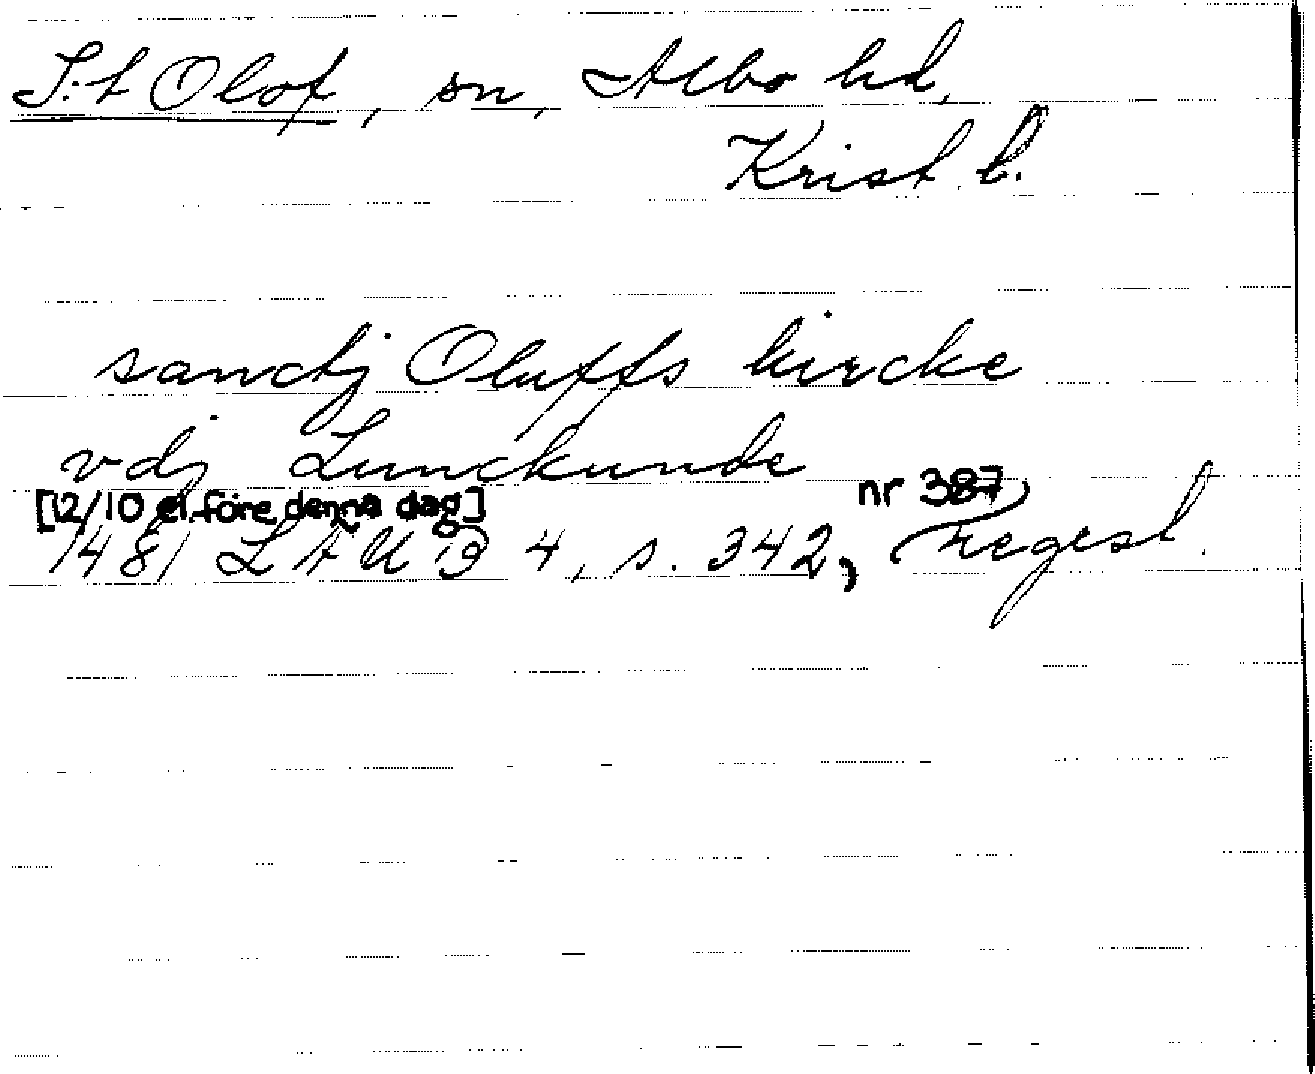 S:t Olof, sn, Albo hd,
Krist. l.
sanctj Oluffs kircke
vdj Lunckunde
[12/10 el. före denna dag] nr 387
1481 LÄUB 4, s. 342, Regest.